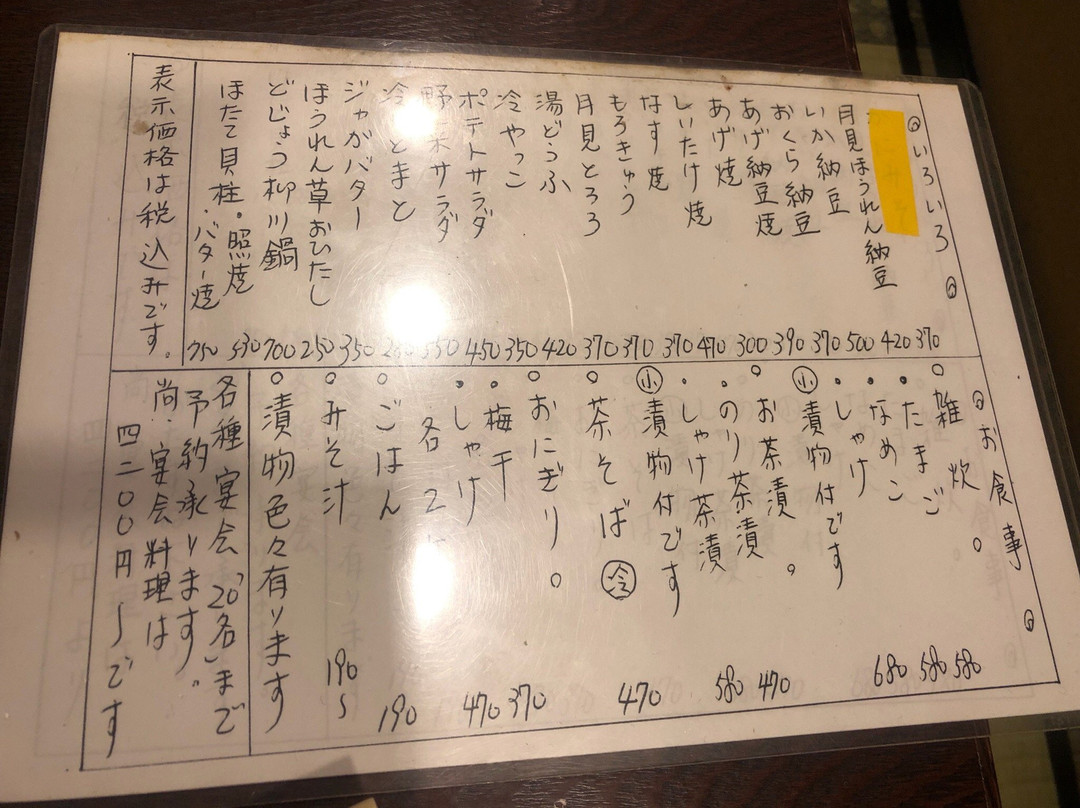 いろいろ
370
月見ほうれん納豆 420
いか納豆 500
おくら納豆 370
あげ納豆焼 390
あげ焼 300
しいたけ焼 470
なす焼 370
もろきゅう 370
月見とろろ 370
湯どうふ 420
冷やっこ 350
ポテトサラダ 450
野菜サラダ
冷とまと
ジャがバター 350
ほうれん草おひたし 250
どじょう柳川鍋 700
ほたて貝柱・照焼 530
・バター焼 750
表示価格は税込みです。
お食事
○雑炊。
・たまご 580
・なめこ 580
・しゃけ 680
㊙漬物付です
○お茶漬。
・のり茶漬 470
・しゃけ茶漬 580
小漬物付です
○茶そば 冷 470
○おにぎり。
・梅干 370
・しゃけ 470
各2
○ごはん 190
○みそ汁 190〜
○漬物色々有ります
各種宴会「20名」まで
予約承ります。
尚、宴会料理は
四二〇〇円〜です